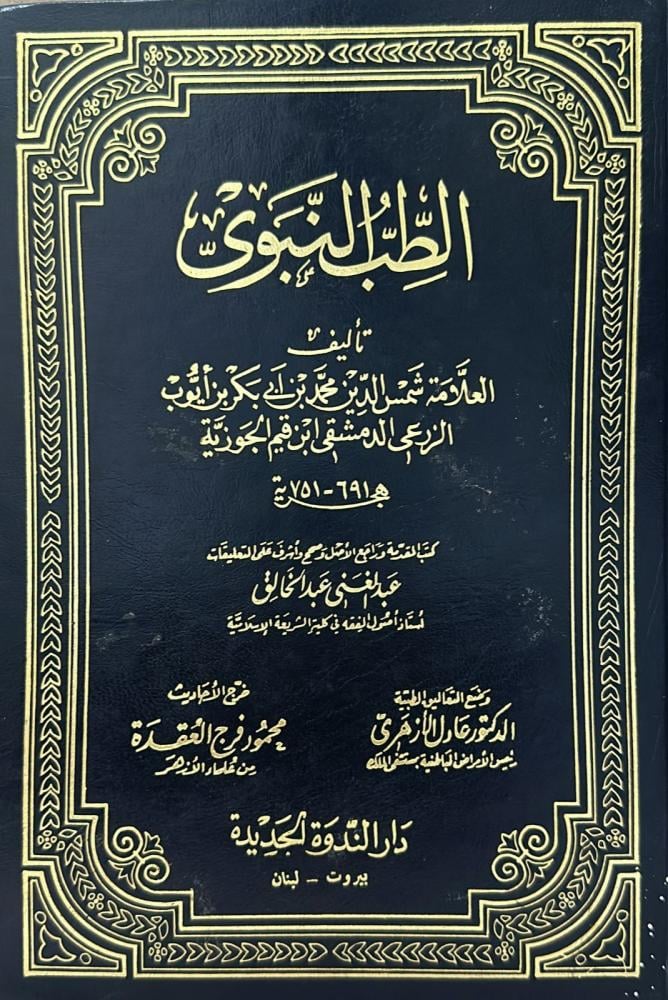 الطِّبُّ النَّبَوِيّ
تأليف
العلَّامة شمس الدِّين محمّد بن أبي بكر بن أيُّوب
الزرعي الدمشقي ابن قيم الجوزيَّة
٦٩١ - ٧٥١ هجرية
كتب المقدمة وراجع الأصل وصحح وأشرف على التعليقات
عبد الغني عبد الخالق
أستاذ أصول الفقه في كلية الشريعة الإسلاميَّة
وضع التعاليق الطبيَّة
الدكتور عادل الأزهريّ
رئيس الأمراض الباطنية بمستشفى الملك
خرّج الأحاديث
محمود فرج العقدة
من علماء الأزهر
دار الندوة الجديدة
بيروت - لبنان